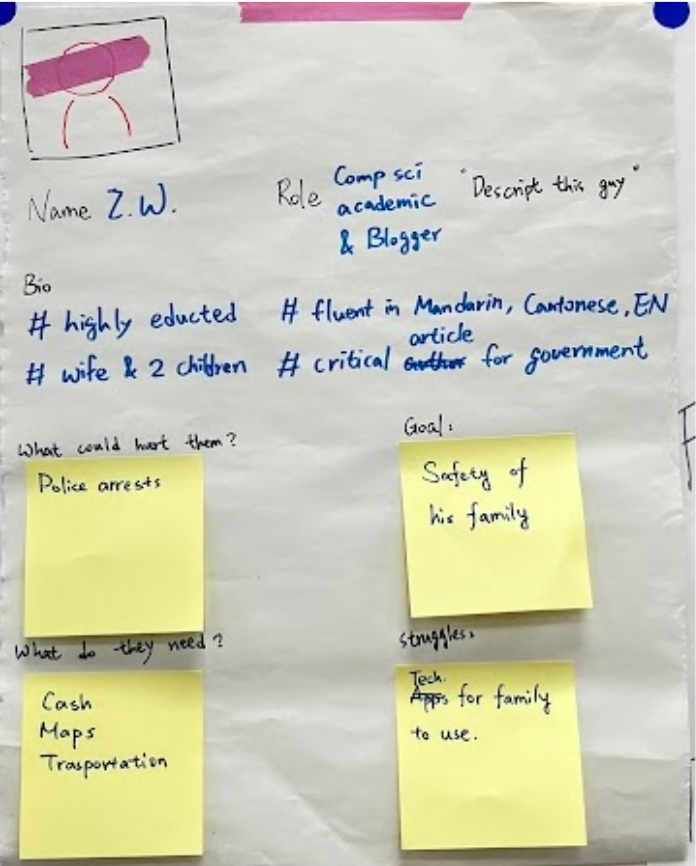 Name Z.W.
Role Comp sci
academic
& Blogger
"Descript this guy"
Bio
# highly educted
# fluent in Mandarin, Cantonese, EN
# wife & 2 children
article
# critical author for government
What could hurt them?
Police arrests
Goal:
Safety of
his family
What do they need?
Cash
Maps
Trasportation
struggles:
Tech.
Apps for family
to use.